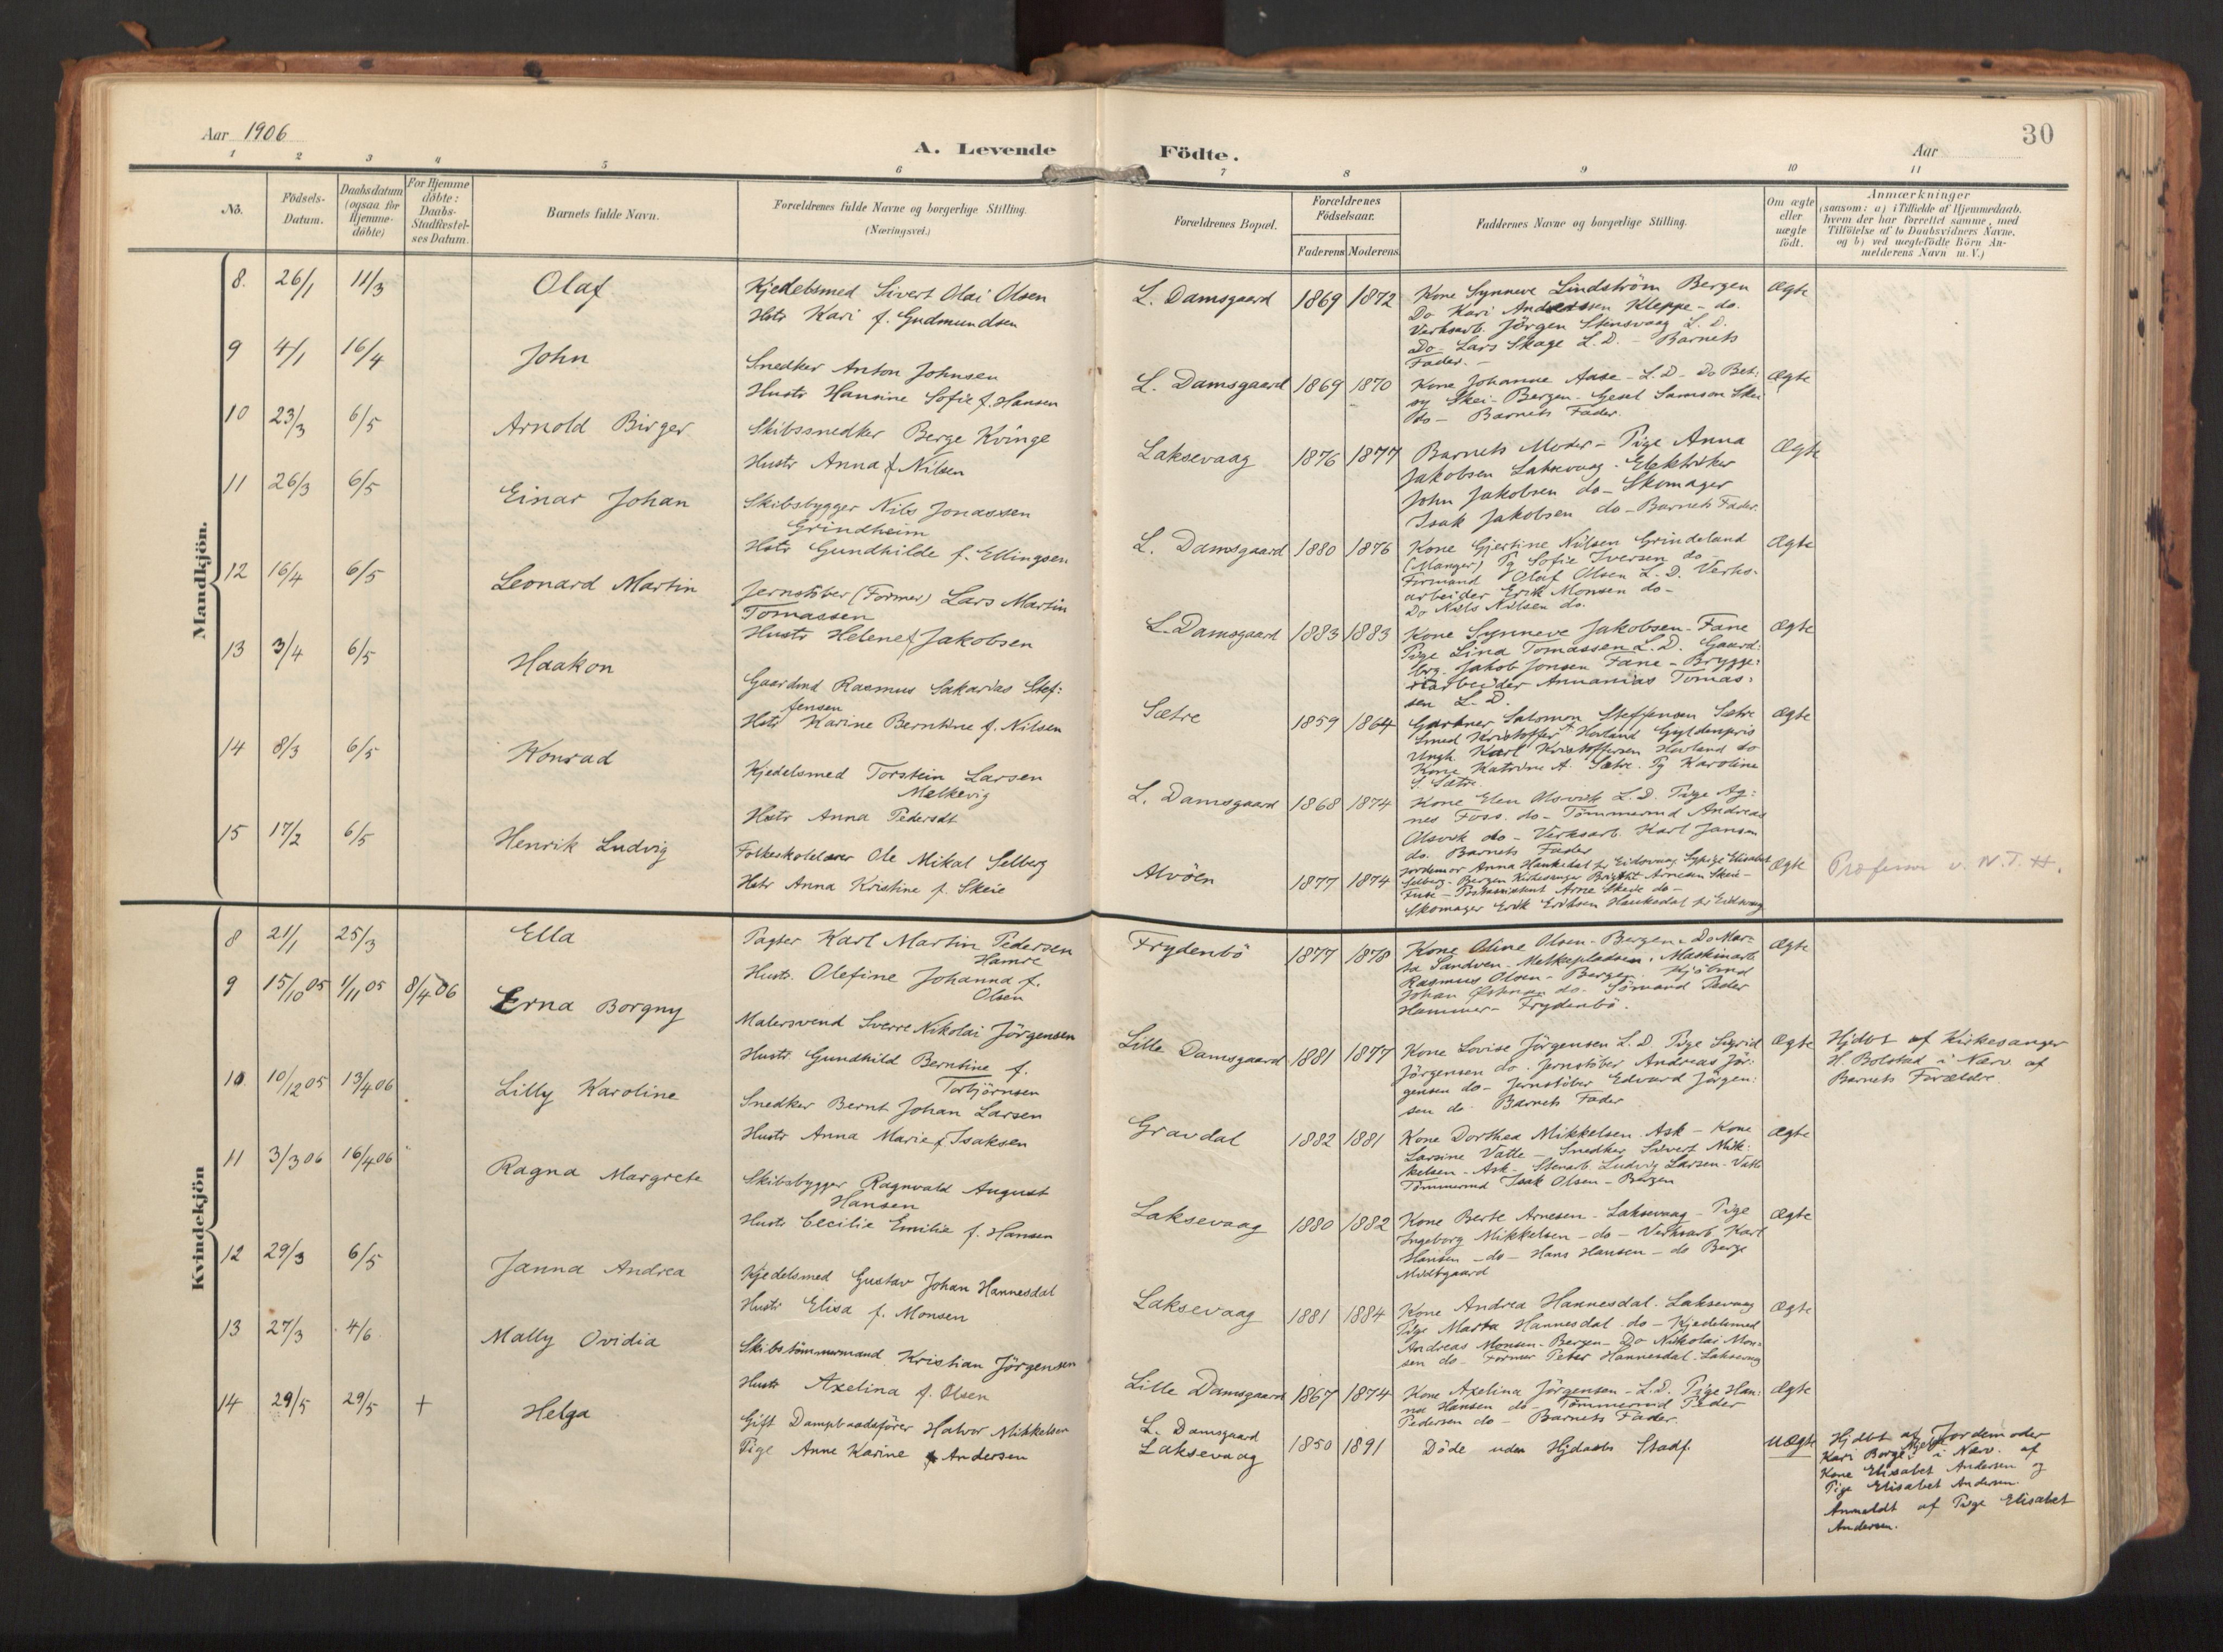 Aar 1906
A. Levende
Födte.
Aar
30
1 2 3 4 5 6 7 8 9 10 11
Nö.
Födsels-
Datum.
Daabsdatum
(ogsaa for
Hjemme-
döbte)
For Hjemme
döbte:
Daabs-
Stadfæstel-
ses Datum.
Barnets fulde Navn.
Forældrenes fulde Navne og borgerlige Stilling.
(Næringsvei.)
Forældrenes Bopæl.
Forældrenes
Födselsaar.
Faderens Moderens
Faddernes Navne og borgerlige Stilling.
Om ægte
eller
uægte
födt.
Anmærkninger
(saasom: a) i Tilfælde af Hjemmedaab,
hvem der har forrettet samme, med
Tilföielse af to Daabsvidners Navne,
og b) ved uægtefödte Börn An-
melderens Navn m. V.)
Mandkjön.
8. 26/1 11/3 Olaf
Kjedelsmed Sivert Olai Olsen
Hstr Kari f. Gudmundsen
L. Damsgaard 1869 1872
Kone Synneve Lindström Bergen
Do Kari Anderssen Kleppe - do.
Verksarb. Jörgen Stensvaag L. D.
Do - Lars Skage L. D. - Barnets
Fader. -
Ægte
9 4/1 16/4 John
Snedker Anton Johnsen
Hustr Hansine Sofie f. Hansen
L. Damsgaard 1869 1870
Kone Johanne Aase - L. D - Do Bet:
sy Skei - Bergen. Gesel Samson Skei
do - Barnets Fader.
Ægte
10 23/3 6/5 Arnold Birger
Skibssnedker Berge Kvinge
Hustr Anna f Nilsen
Laksevaag 1876 1877
Barnets Moder - Pige Anna
Jakobsen Laksevaag. Elektriker
John Jakobsen do - Skomager
Isak Jakobsen do - Barnets Fader.
Ægte
11 26/3 6/5 Einar Johan
Skibsbygger Nils Jonassen
Grindheim
Hstr Gundhilde f. Ellingsen
L. Damsgaard 1880 1876
Kone Gjertine Nilsen Grindeland
(Manger) Pg Sofie Iversen do -
Formand Olaf Olsen L. D. Verks-
arbeider Erik Monsen do -
Do Nils Nilsen do.
Ægte
12 16/4 6/5 Leonard Martin
Jernstöber (Former) Lars Martin
Tomassen
Hustr Helene f Jakobsen
L. Damsgaard 1883 1883
Kone Synneve Jakobsen - Fane
Pige Lina Tomassen L. D. Gaard:
brg. Jakob Jonsen Fane - Brygge:
riarbeider Annanias Tomas:
sen L. D.
Ægte
13 3/4 6/5 Haakon
Gaardmd Rasmus Sakarias Stef:
fensen
Hstr Karine Berntine f. Nilsen
Sætre 1859 1864
Gartner Salomon Steffensen Sætre
Smed Kristoffer A Hovland Gyldenpris
Ungk Karl Kristoffersen Hovland do
Kone Katrine A. Sætre. Pg Karoline
S. Sætre.
Ægte
14 8/3 6/5 Konrad
Kjedelsmed Torstein Larsen
Melkevig
Hstr Anna Pedersdt
L. Damsgaard 1868 1874
Kone Elen Alsvik L. D. Pige Ag:
nes Foss. do - Tömmermd Andreas
Alsvik do - Verksarb. Karl Jansen
do. Barnets Fader
15 17/2 6/5 Henrik Ludvig
Folkeskolelærer Ole Mikal Selberg
Hstr Anna Kristine f. Skeie
Alvöen 1877 1874
Jordemor Anna Haukedal pr Eidsvaag Sypige Elisabet
Selberg - Bergen Kirkesanger Arnesen Skeie -
Fuse - Postassistent Arne Skeie do -
Skomager Erik Eriksen Haukedal pr Eidsvaag
Ægte
Professor v. N. T. H.
Kvindekjön
8 21/1 25/3 Ella
Pagter Karl Martin Pedersen
Hamre
Hustr. Olefine Johanna f.
Olsen
Frydenbö 1877 1878
Kone Oline Olsen - Bergen - Do Mar-
ta Sandven - Melkepladsen, Maskinarb
Rasmus Olsen - Bergen.
Johan do. Sömand Peder
Hammer - Frydenbö.
Ægte
9 15/10 05 1/11 05 8/4 06 Erna Borgny
Malersvend Sverre Nikolai Jörgensen
Hustr. Gundhild Berntine f.
Torbjörnsen
Lille Damsgaard 1881 1877
Kone Lovise Jörgensen L. D. Pige Sigrid
Jörgensen do. Jernstöber Andreas Jör:
gensen do - Jernstöber Edvard Jörgen:
sen do - Barnets Fader
Ægte
Hjdbt af Kirkesanger
H. Bolstad i Nærv. af
Barnets Forældre.
10. 10/12 05 13/4 06 Lilly Karoline
Snedker Bernt Johan Larsen
Hustr Anna Marie f. Isaksen
Gravdal 1882 1881
Kone Dorthea Mikkelsen. Ask - Kone
Larsine Vatle - Snedker Sivert Mik:
kelsen - Ask - Stenarb. Ludvig Larsen - Vatle
Tömmermd Isak Olsen - Bergen
Ægte
11 3/3 06 16/4 06 Ragna Margrete
Skibsbygger Ragnvald August
Hansen
Hustr Cecilie Emilie f. Hansen
Laksevaag 1880 1882
Kone Berte Arnesen - Laksevaag - Pige
Ingeborg Mikkelsen - do - Verksarb Karl
Hansen - do - Hans Hansen - do Berge
Midtgaard
Ægte
12 29/3 6/5 Janna Andrea
Kjedelsmed Gustav Johan Hannesdal
Hustr Elisa f. Monsen
Laksevaag 1881 1884
Kone Andrea Hannesdal - Laksevaag
Pige Marta Hannesdal do - Kjedelsmed
Andreas Monsen - Bergen - Do Nikolai Mon-
sen do - Former Peter Hannesdal - Laksevaag
Ægte
13 27/3 4/6 Mally Ovidia
Skibstömmermand Kristian Jörgensen
Hustr Axelina f. Olsen
Lille Damsgaard 1867 1874
Kone Axelina Jörgensen - L. D. Pige Han:
na Hansen do - Tömmermd Peder
Pedersen do - Barnets Fader.
Ægte
14 29/5 29/5 + Helga
Gift Dampbaadsförer Halvor Mikkelsen
Pige Anne Karine Andersen
L. Damsgaard
Laksevaag
1850 1891
Döde uden Hjdaabs Stadf.
uægte
Hjdbt af Jordemoder
Kari Borge i Nærv. af
Kone Elisabet Andersen og
Pige Elisabet Andersen.
Anmeldt af Pige Elisabet
Andersen.